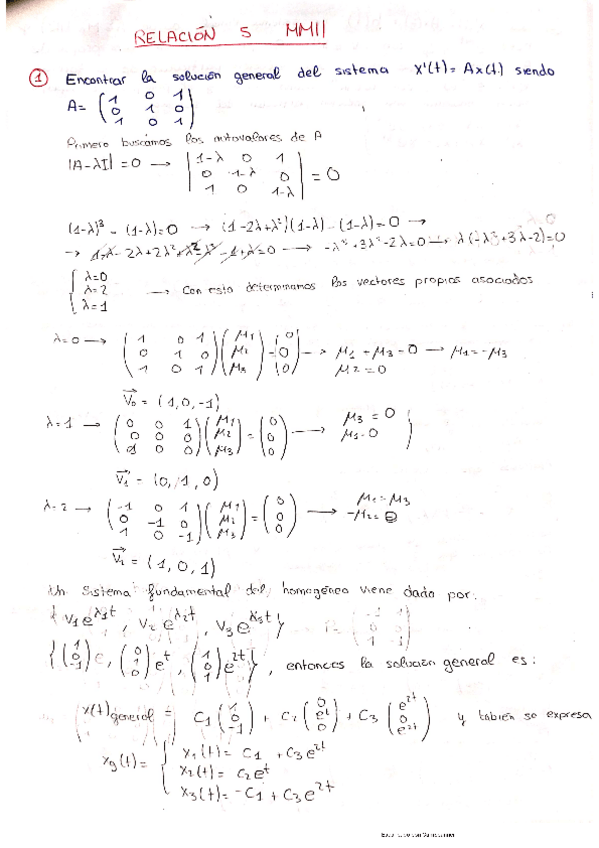 RELACIÓN 5 MMII
① Encontrar la solución general del sistema X'(t) = Ax(t) siendo
A= (1 0 1
0 1 0
1 0 1)
Primero buscamos los autovalores de A
|A-λI| = 0 → |1-λ 0 1
0 1-λ 0
1 0 1-λ| = 0
(1-λ)³ - (1-λ)=0 → (1-2λ+λ²)(1-λ) - (1-λ)=0 →
→ 1-λ-2λ+2λ²+λ²-λ³-1+λ=0 → -λ³+3λ²-2λ=0 → λ(-λ²+3λ-2)=0
{ λ=0
λ=2
λ=1 → Con esto determinamos los vectores propios asociados
λ=0 → (1 0 1
0 1 0
1 0 1) (μ1
μ2
μ3) = (0
0
0) → μ1 + μ3 = 0 → μ1=-μ3
μ2=0
V0 = (1,0,-1)
λ=1 → (0 0 1
0 0 0
1 0 0) (μ1
μ2
μ3) = (0
0
0) → μ3 = 0
μ1=0
V1 = (0, 1, 0)
λ=2 → (-1 0 1
0 -1 0
1 0 -1) (μ1
μ2
μ3) = (0
0
0) → μ1=μ3
-μ2=0
= (1, 0, 1)
Un Sistema fundamental del homogéneo viene dado por:
{ V1e^λ1t, V2e^λ2t, V3e^λ3t }
, (0
1
0) e^t, (1
0
1) e^2t }, entonces la solución general es:
x(t)general = C1 (1
0
-1) + C2 (0
e^t
0) + C3 (e^2t
0
e^2t) y tabién se expresa
xg(t) = { x1(t) = C1 + C3e^2t
x2(t) = C2e^t
x3(t) = -C1 + C3e^2t